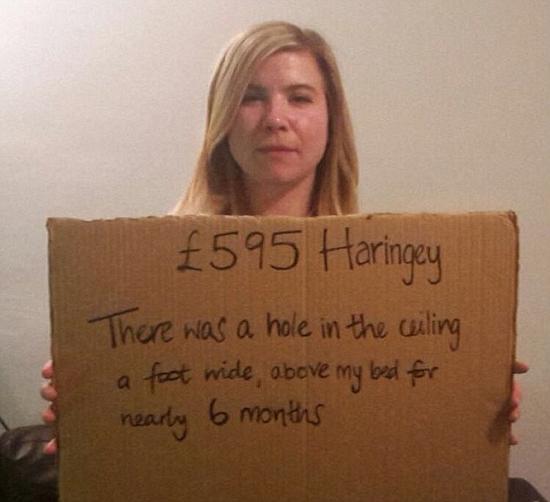 £595 Haringey
There was a hole in the ceiling
a foot wide, above my bed for
nearly 6 months